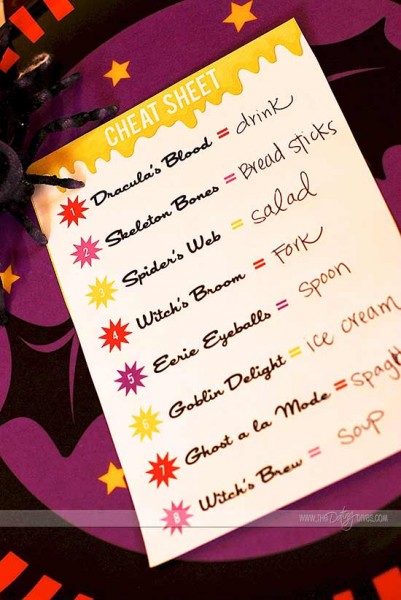 CHEAT SHEET
1 Dracula's Blood = drink
2 Skeleton Bones = Bread sticks
3 Spider's Web = salad
4 Witch's Broom = Fork
5 Eerie Eyeballs = spoon
6 Goblin Delight = ice cream
7 Ghost a la Mode = Spagh
8 Witch's Brew = Soup
WWW.THEDatingDIVAS.COM